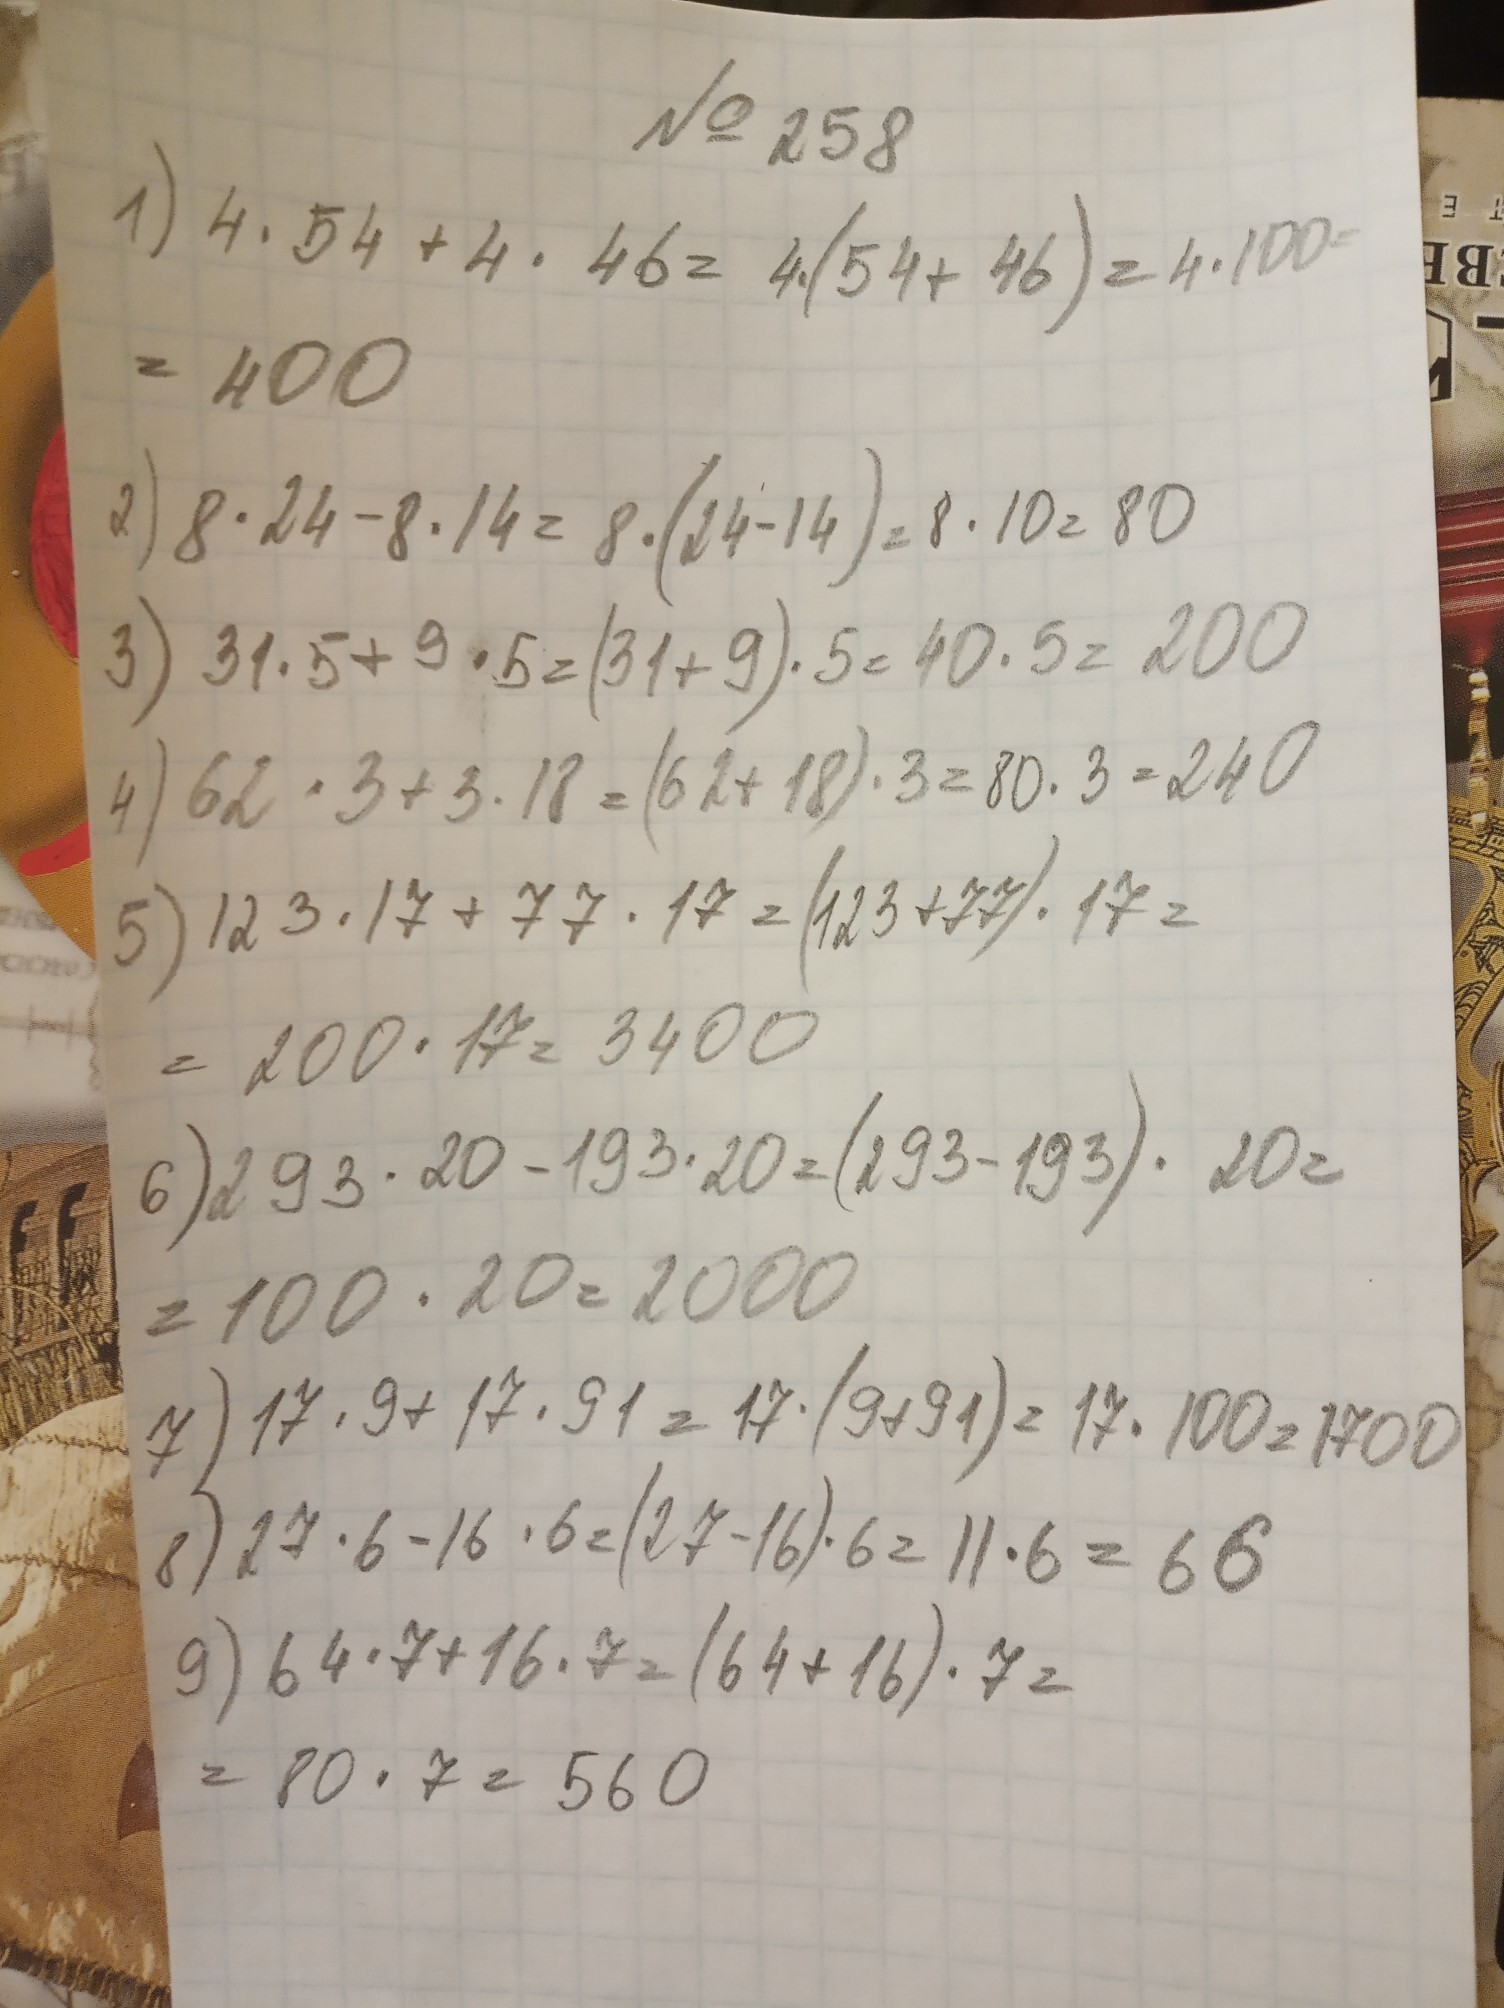 № 258
1) 4·54+4·46=4·(54+46)=4·100=
=400
2) 8·24-8·14=8·(24-14)=8·10=80
3) 31·5+9·5=(31+9)·5=40·5=200
4) 62·3+3·18=(62+18)·3=80·3=240
5) 123·17+77·17=(123+77)·17=
=200·17=3400
6) 293·20-193·20=(293-193)·20=
=100·20=2000
7) 17·9+17·91=17·(9+91)=17·100=1700
8) 27·6-16·6=(27-16)·6=11·6=66
9) 64·7+16·7=(64+16)·7=
=80·7=560